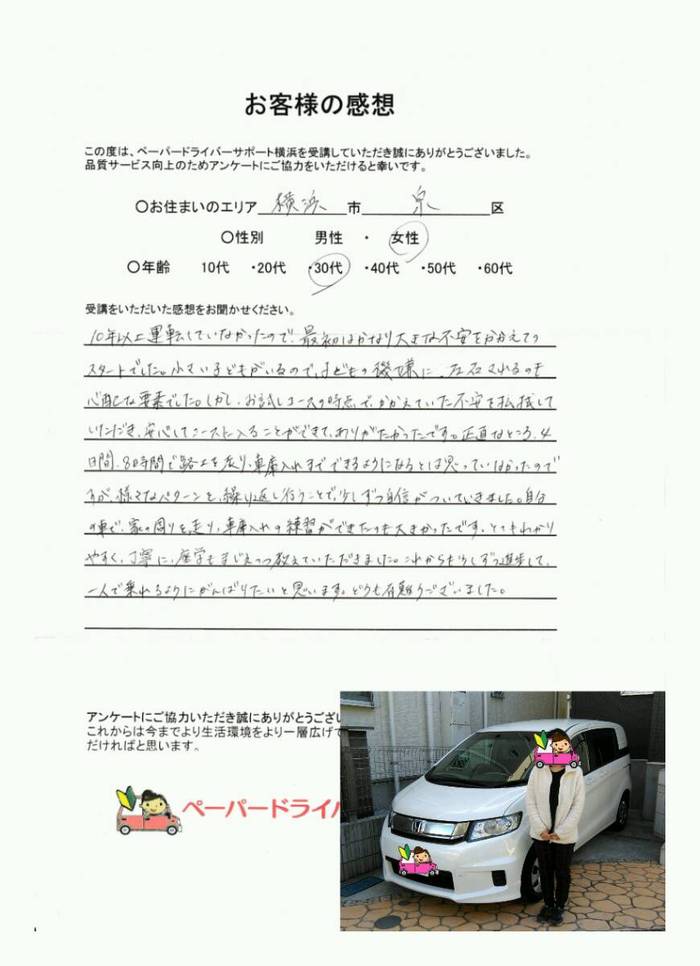 お客様の感想
この度は、ペーパードライバーサポート横浜を受講していただき誠にありがとうございました。
品質サービス向上のためアンケートにご協力をいただけると幸いです。
〇お住まいのエリア 横浜 市 泉 区
〇性別 男性 ・ 女性
〇年齢 10代 ・20代 ・30代 ・40代 ・50代 ・60代
受講をいただいた感想をお聞かせください。
10年以上運転していなかったので、最初はかなり大きな不安をかかえての
スタートでした。小さい子どもがいるので、子どもの機嫌に、左右されるのも
心配な要素でした。しかし、お試しコースの時点で、かかえていた不安を払拭して
いただき、安心してコースに入ることができて、ありがたかったです。正直なところ、4
日間、8時間で路上を走り、車庫入れまでできるようになるとは思っていなかったので
すが、様々なパターンを、繰り返し行うことで、少しずつ自信がついていきました。自分
の車で、家の周りを走り、車庫入れの練習ができたのも大きかったです。とてもわかり
やすく、丁寧に、座学もまじえつつ教えていただきました。これからも少しずつ進歩して、
一人で乗れるようにがんばりたいと思います。どうも有難うございました。
アンケートにご協力いただき誠にありがとうござい
これからは今までより生活環境をより一層広げて
だければと思います。
ペーパードライバ